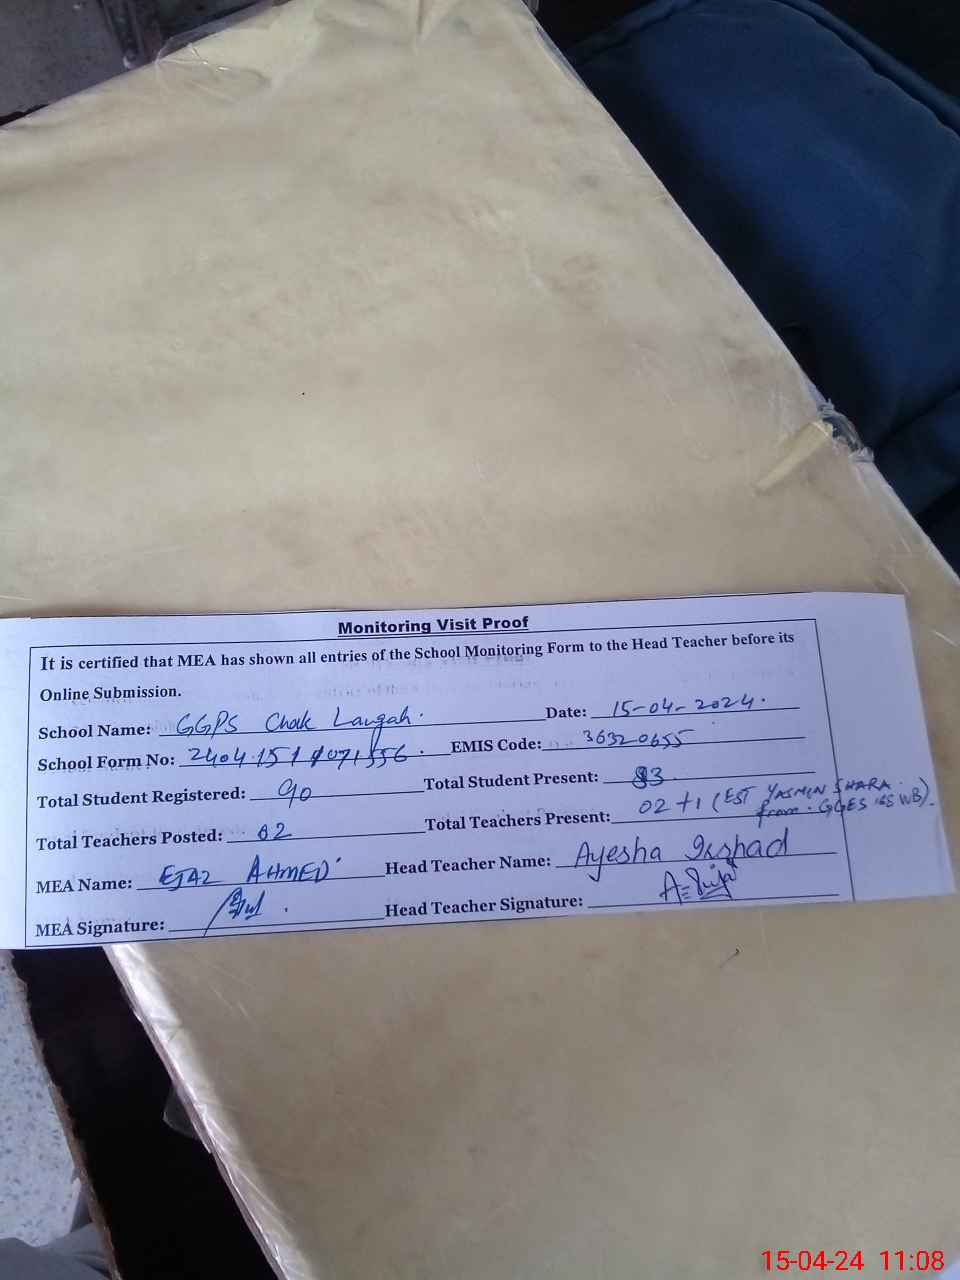 Monitoring Visit Proof
It is certified that MEA has shown all entries of the School Monitoring Form to the Head Teacher before its
Online Submission.
School Name: GGPS Chak Langah. Date: 15-04-2024.
School Form No: EMIS Code: 36320655
Total Student Registered: 90 Total Student Present: 83
Total Teachers Posted: 02 Total Teachers Present: 02 +1 (EST YASMIN SHARA
from. GGES WB).
MEA Name: EJAZ AHMED Head Teacher Name: Ayesha Irshad
MEA Signature: Head Teacher Signature:
15-04-24 11:08